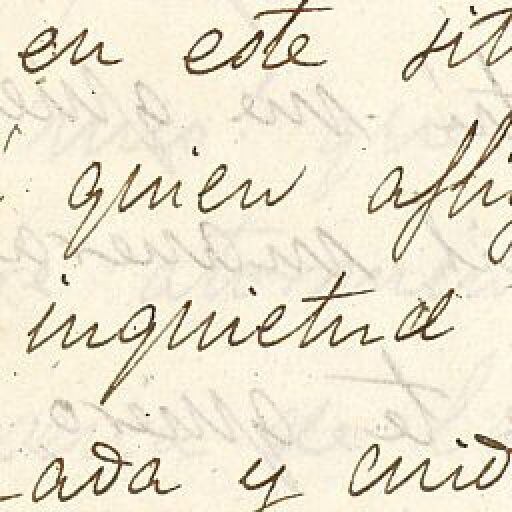 en este sit
quien aflig
inquietud
ada y cuid